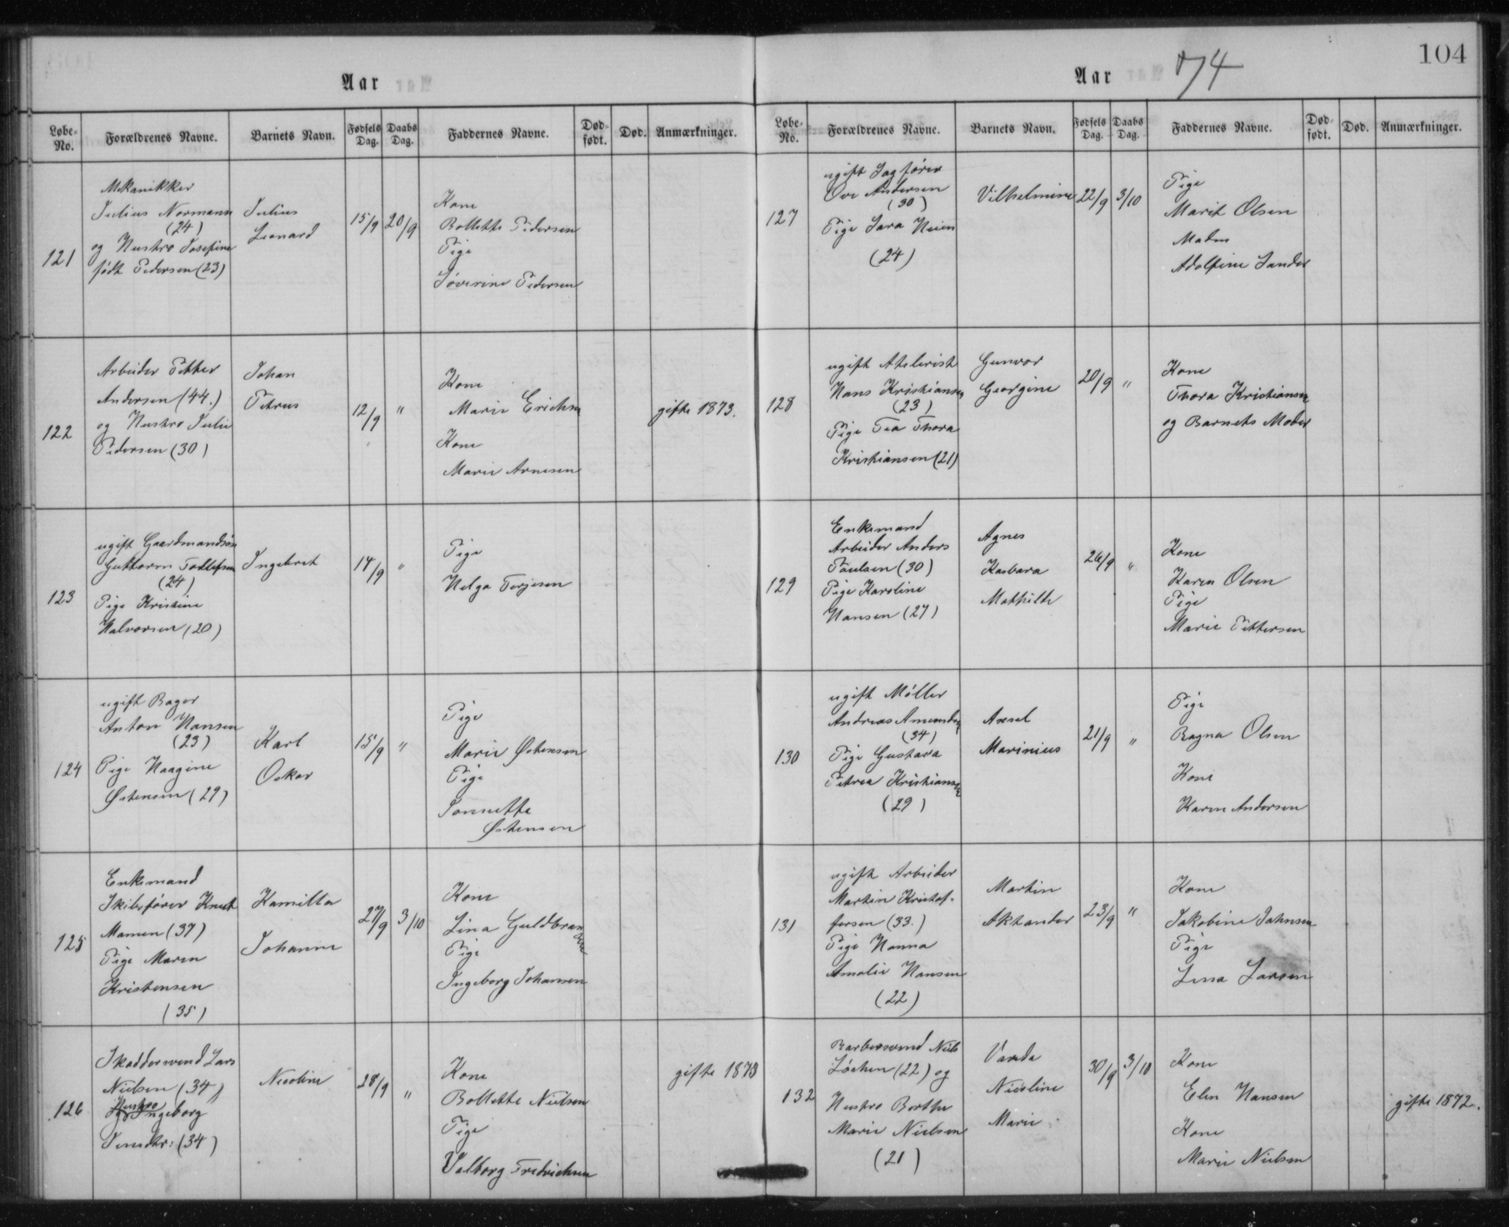 104
Aar
Løbe-No.
Forældrenes Navne.
Barnets Navn.
Fødsels Dag.
Daabs Dag.
Faddernes Navne.
Død-født.
Død.
Anmærkninger.
121
Mekanikker
Julius Normann
(24)
og Hustro Josefine
født Pedersen (23)
Julius
Leonard
15/9
20/9
Kone
Bollette Pedersen
Pige
Søverine Pedersen
122
Arbeider Petter
Andersen (44.)
og Hustro Julie
Pedersen (30)
Johan
Petrus
12/9
"
Kone
Marie Erichsen
Kone
Marie Arnesen
gifte 1873.
123
ugift Gaardmandsøn
Guttorm Tollefsen
(24)
Pige Kristine
Halvorsen (20)
Ingebret
14/9
"
Pige
Helga Terjesen
124
ugift Bager
Anton Hansen
(23)
Pige Haagine
Østensen (29)
Karl
Oskar
15/9
"
Pige
Marie Østensen
Pige
Jonette
Østensen
125
Enkemand
Skibsfører Knut
Mamen (37)
Pige Maren
Kristensen
(35)
Kamilla
Johanne
27/9
3/10
Kone
Lina Guldbransen
Pige
Ingeborg Johansen
126
Skaddersvend Lars
Nielsen (34)
Hustro
Ingeborg
(34)
Nicoline
28/9
"
Kone
Bollette Nielsen
Pige
Valborg Fredriksen
gifte 1873
Aar
74
Løbe-No.
Forældrenes Navne.
Barnets Navn.
Fødsels Dag.
Daabs Dag.
Faddernes Navne.
Død-født.
Død.
Anmærkninger.
127
ugift Sagfører
Ove Andersen
(30)
Pige Sara Heien
(24)
Vilhelmine
22/9
3/10
Pige
Marit Olsen
Madm
Adolfine Sander
128
ugift Atelerist
Hans Kristiansen
(23)
Pige Tea Thora
Kristiansen (21)
Gunvor
Georgine
20/9
"
Kone
Thora Kristiansen
og Barnets Moder
129
Enkemand
Arbeider Anders
Poulsen (30)
Pige Karoline
Hansen (27)
Agnes
Kasbara
Mathilde
26/9
"
Kone
Karen Olsen
Pige
Marie Pettersen
130
ugift Møller
Andreas Amundsen
(34)
Pige Gustava
Petrea Kristiansen
(29)
Axsel
Marinius
21/9
"
Pige
Ragna Olsen
Kone
Karen Andersen
131
ugift Arbeider
Martin Kristof-
fersen (33.)
Pige Hanna
Amalie Hansen
(22)
Martin
Aksander
23/9
"
Kone
Jakobine Johnsen
Pige
Lena Larsen
132
Barbersvend Niels
Løchen (22) og
Hustro Berthe
Marie Nielsen
(21)
Vanda
Nicoline
Marie
30/9
3/10
Kone
Elen Hansen
Kone
Marie Nielsen
gifte 1872.